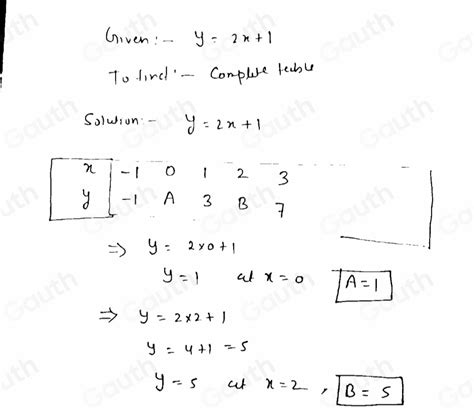 Given :- y = 2x+1
To find :- Complete table
Solution :- y = 2x+1
x -1 0 1 2 3
y -1 A 3 B 7
⇒ y = 2x0+1
y = 1 at x = 0 A=1
⇒ y = 2x2+1
y = 4+1 = 5
y = 5 at x = 2 , B = 5
Gauth